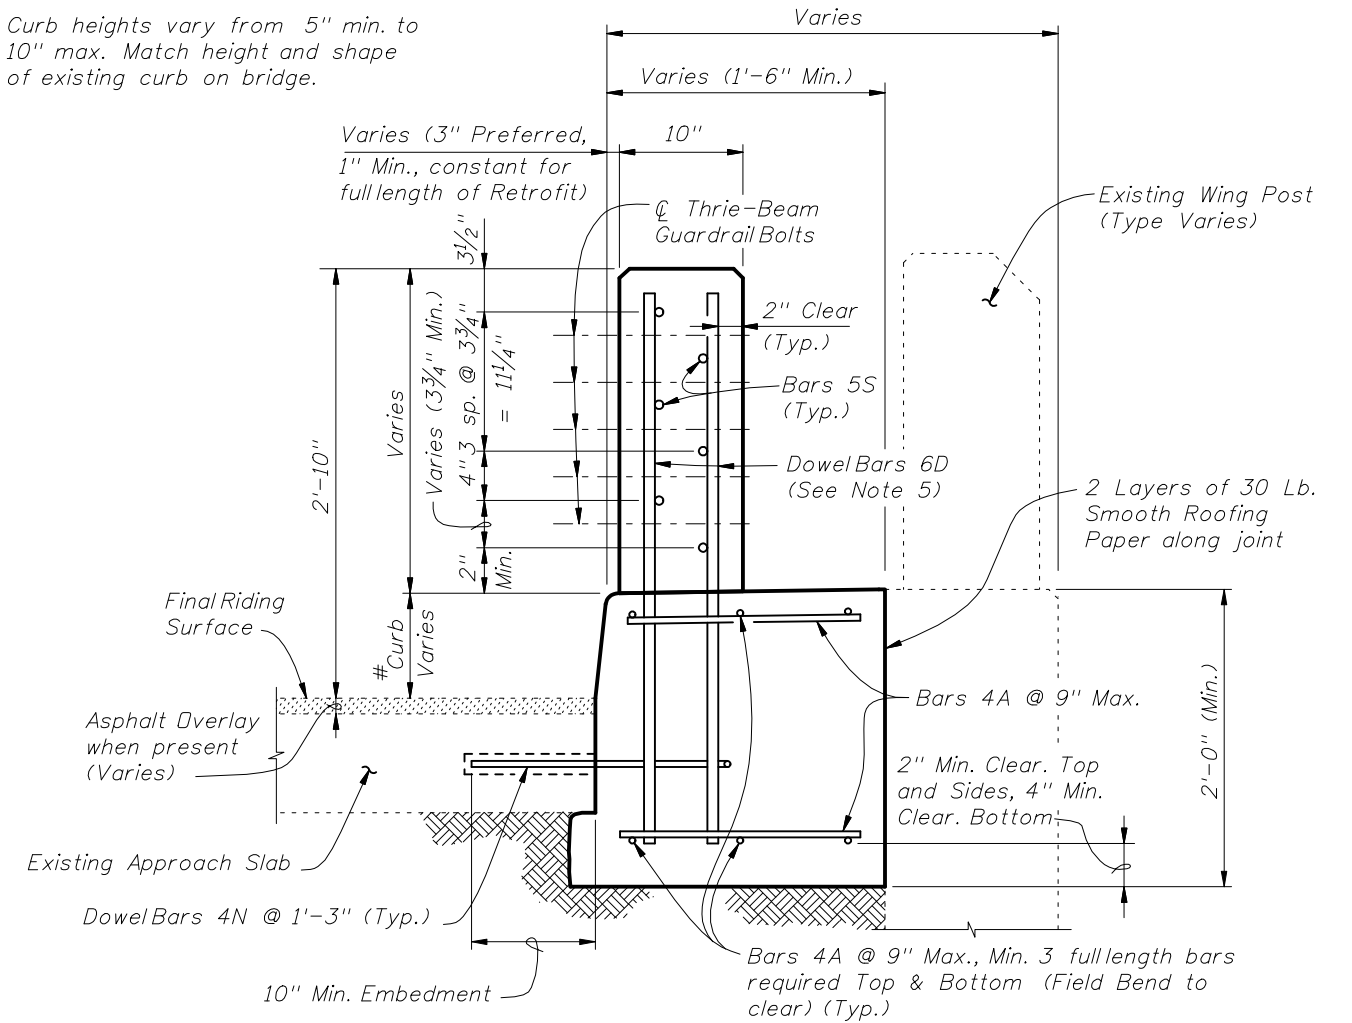 Curb heights vary from 5" min. to
10" max. Match height and shape
of existing curb on bridge.
Varies
Varies (1'-6" Min.)
Varies (3" Preferred,
1" Min., constant for
full length of Retrofit)
10"
℄ Thrie-Beam
Guardrail Bolts
Existing Wing Post
(Type Varies)
3½"
Varies (3¾" Min.)
3 sp. @ 3¾"
= 11¼"
4"
2"
Min.
2" Clear
(Typ.)
Bars 5S
(Typ.)
Dowel Bars 6D
(See Note 5)
2 Layers of 30 Lb.
Smooth Roofing
Paper along joint
Varies
2'-10"
Final Riding
Surface
#Curb
Varies
Asphalt Overlay
when present
(Varies)
Bars 4A @ 9" Max.
2" Min. Clear. Top
and Sides, 4" Min.
Clear. Bottom
2'-0" (Min.)
Existing Approach Slab
Dowel Bars 4N @ 1'-3" (Typ.)
10" Min. Embedment
Bars 4A @ 9" Max., Min. 3 full length bars
required Top & Bottom (Field Bend to
clear) (Typ.)